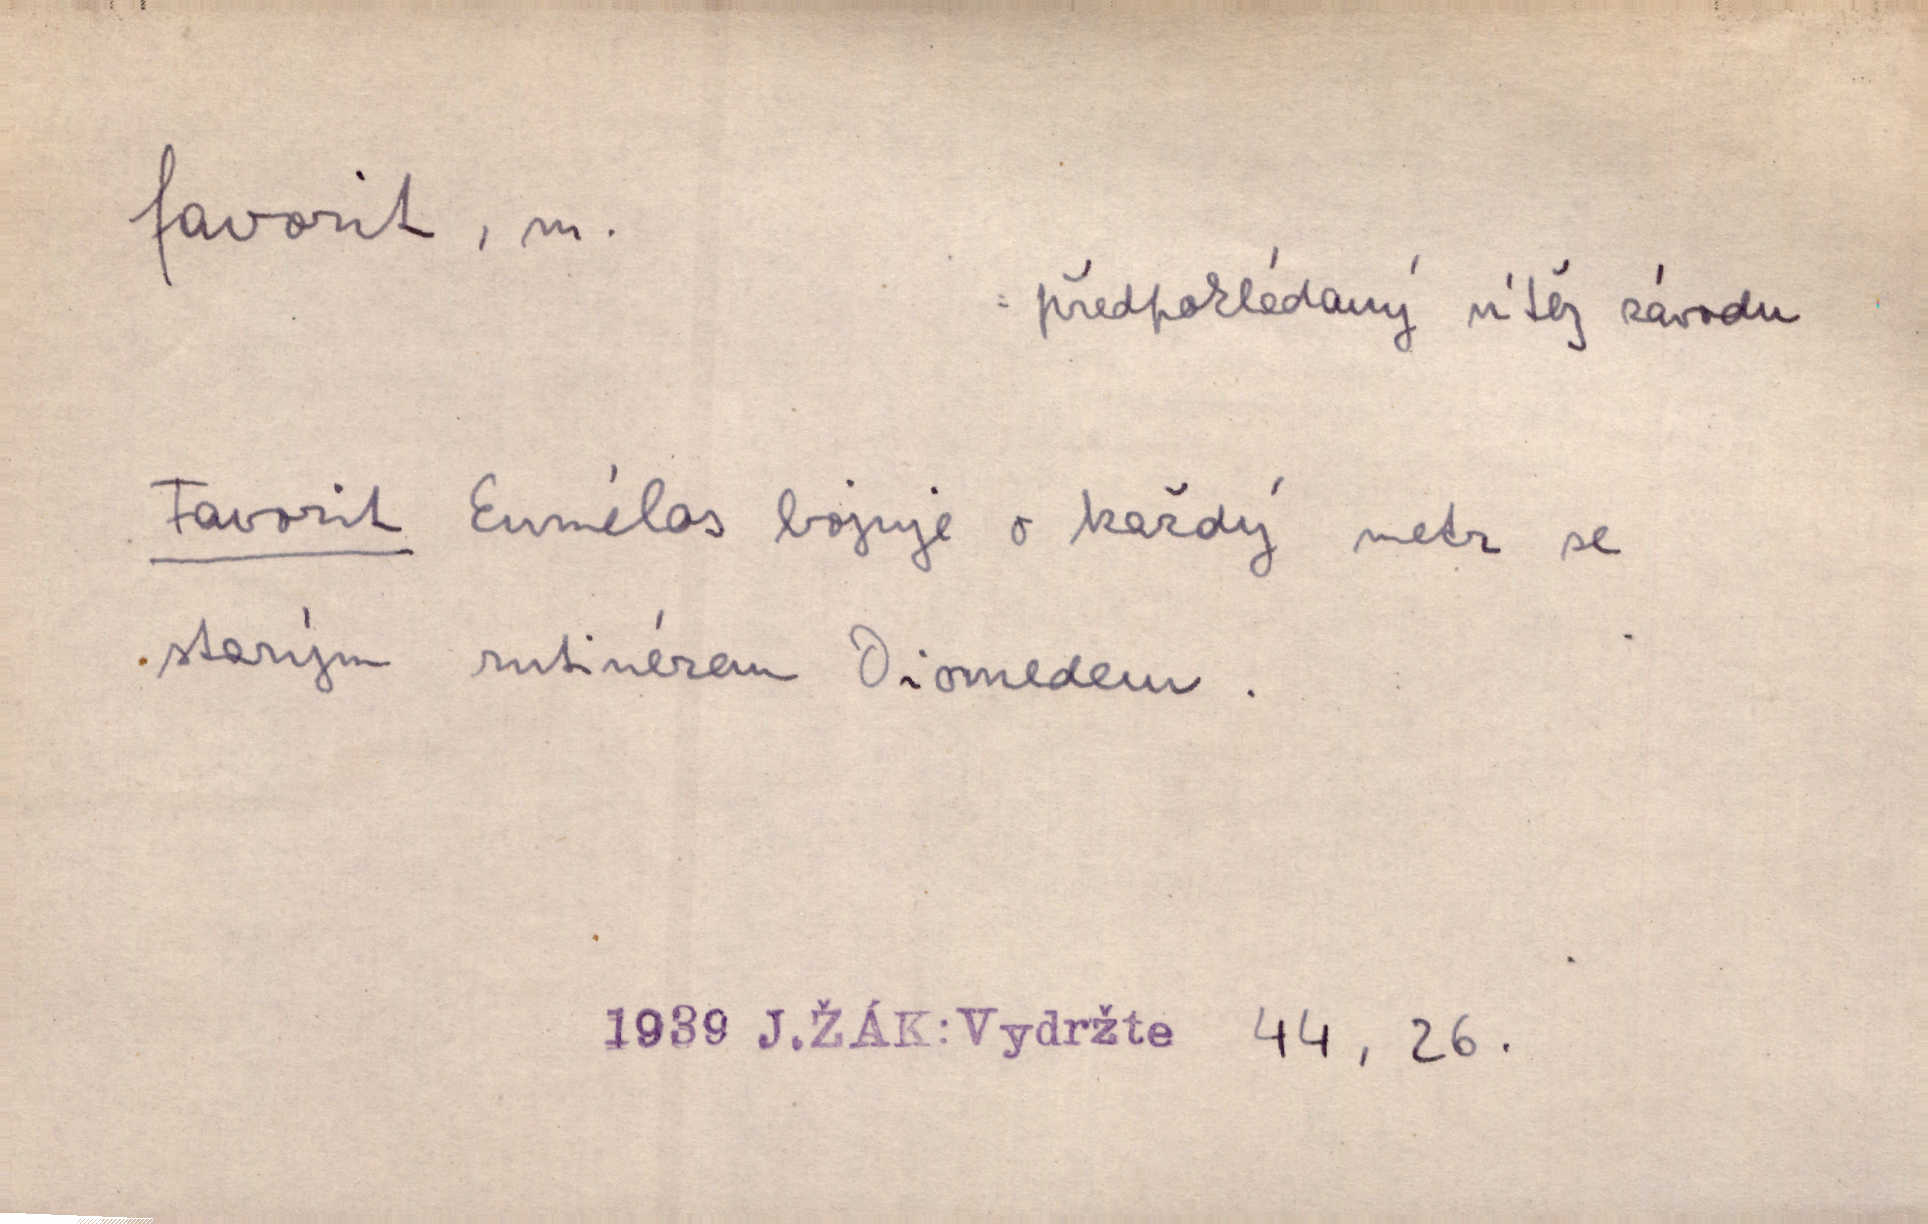 favorit, m.
: předpokládaný vítěz závodu
Favorit Eumélos bojuje o každý metr se
starým rutinérem Diomedem.
1939 J.ŽÁK:Vydržte 44, 26.